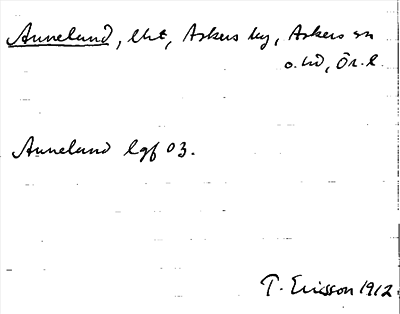 Anneland, lht, Askers by, Askers sn
o. hd, Ör. l.
Anneland lgf 03.
T. Ericsson 1912